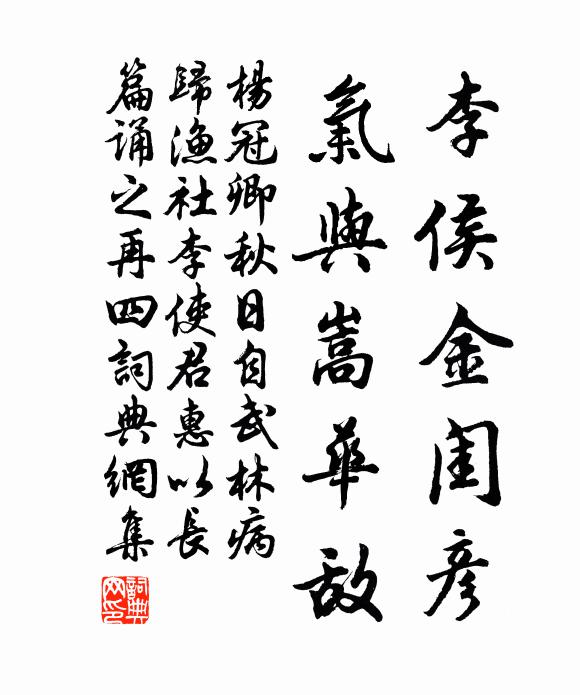 李侯金閨彥
氣與嵩華敵
楊冠卿秋日自武林病
歸漁社李使君惠以長
篇誦之再四詞典網集
詞典网印